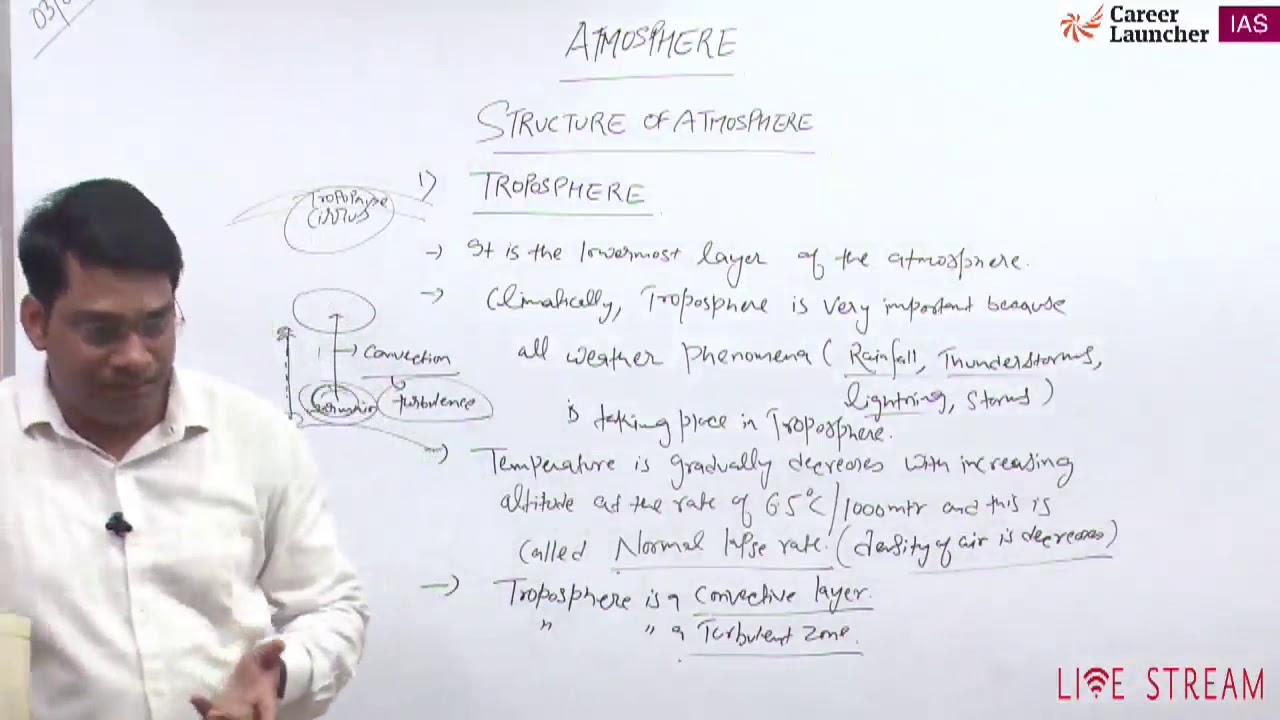 03/0
Career Launcher IAS
ATMOSPHERE
STRUCTURE OF ATMOSPHERE
1) TROPOSPHERE
Cirrus
→ It is the lowermost layer of the atmosphere.
→ Climatically, Troposphere is very important because
all weather phenomena ( Rainfall, Thunderstorms,
lightning, storms )
is taking place in Troposphere.
Convection
turbulence
→ Temperature is gradually decreases with increasing
altitude at the rate of 6.5°C/1000mtr and this is
called Normal lapse rate. (density of air is decreases)
→ Troposphere is a convective layer.
" " a Turbulent zone.
LIVE STREAM